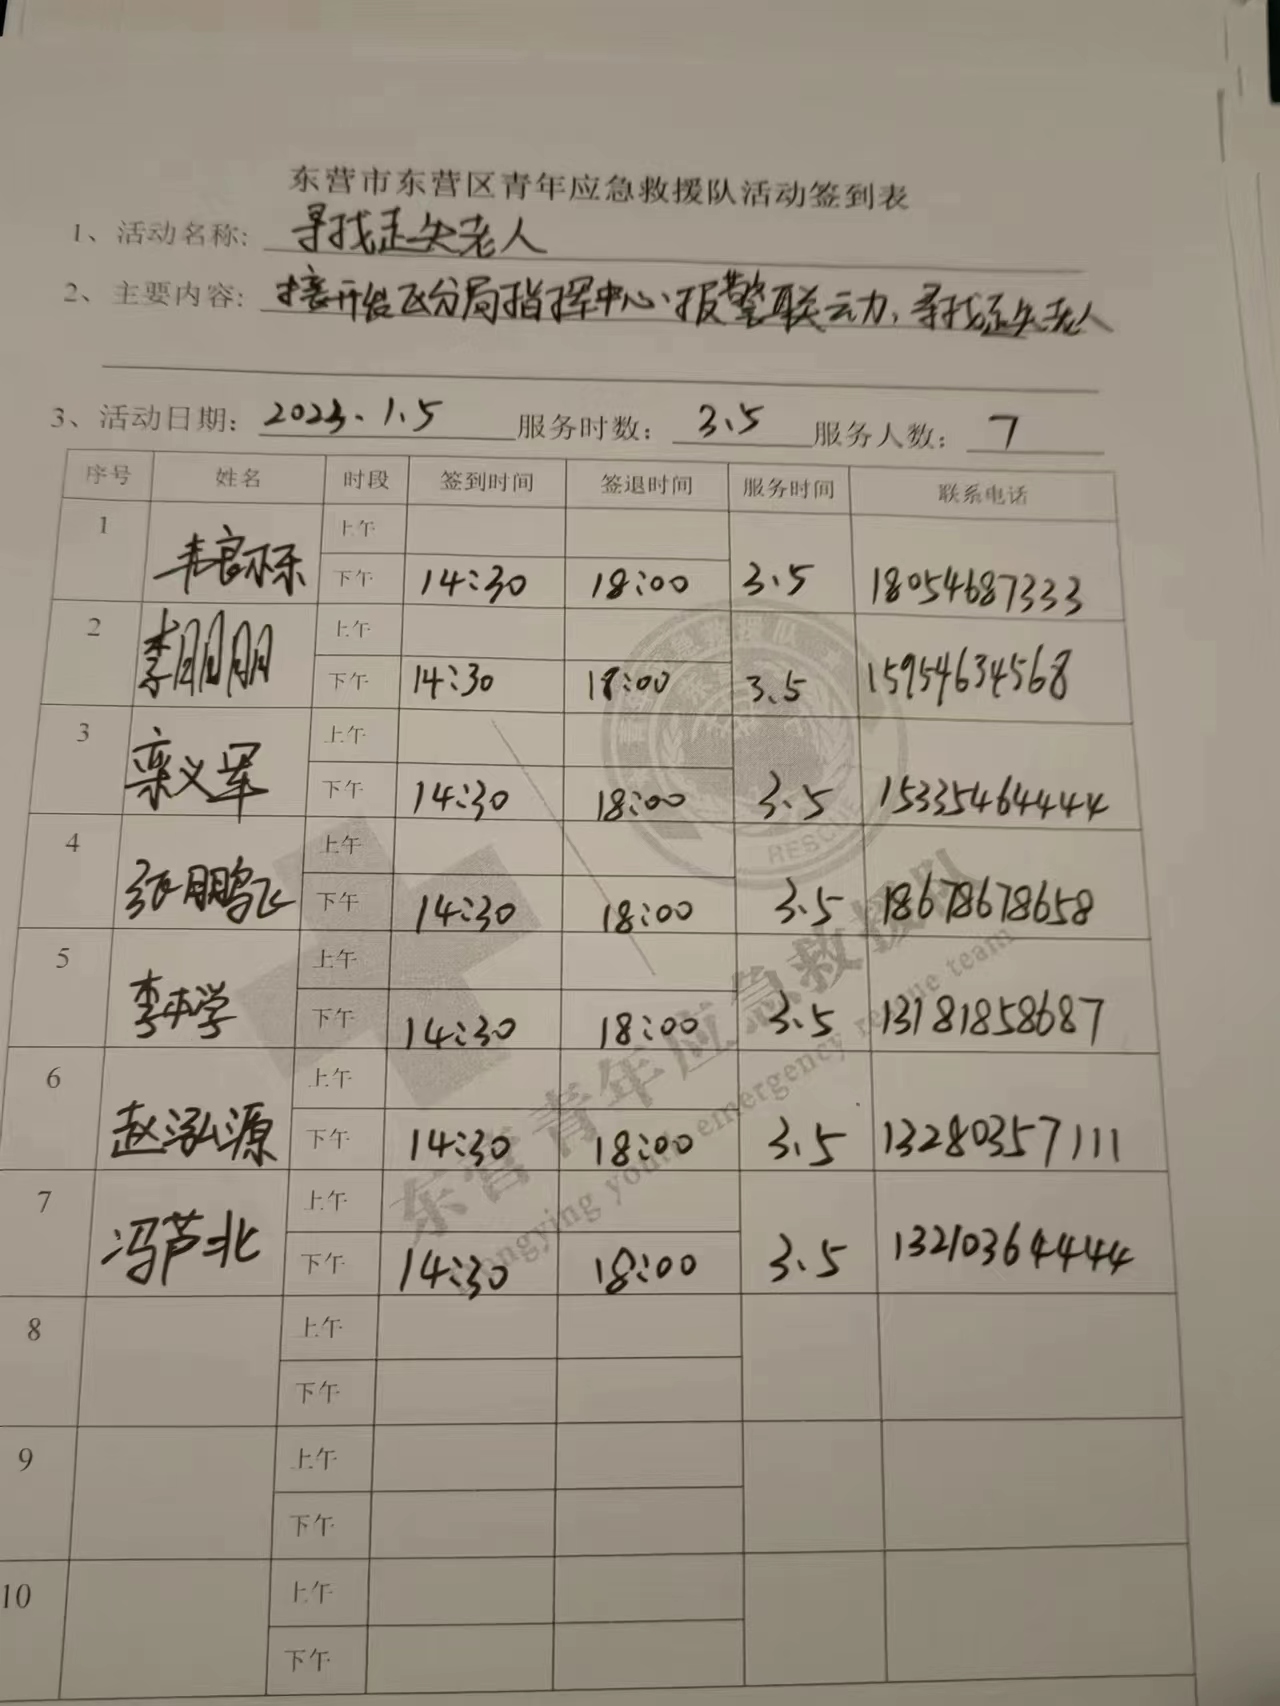 东营市东营区青年应急救援队活动签到表
1、活动名称: 寻找走失老人
2、主要内容: 接开发区分局指挥中心报警联动,寻找走失老人
3、活动日期: 2023.1.5 服务时数: 3.5 服务人数: 7
序号 姓名 时段 签到时间 签退时间 服务时间 联系电话
1 上午
韦良 下午 14:30 18:00 3.5 18054687333
2 李朋朋 上午
下午 14:30 18:00 3.5 15954634568
3 栾义军 上午
下午 14:30 18:00 3.5 15335464444
4 张鹏飞 上午
下午 14:30 18:00 3.5 18678678658
5 李中学 上午
下午 14:30 18:00 3.5 13181858687
6 赵泓源 上午
下午 14:30 18:00 3.5 13280357111
7 冯芦北 上午
下午 14:30 18:00 3.5 13210364444
8 上午
下午
9 上午
下午
10 上午
下午
RESCUE
东营青年应急救援队
Dongying young emergency rescue team